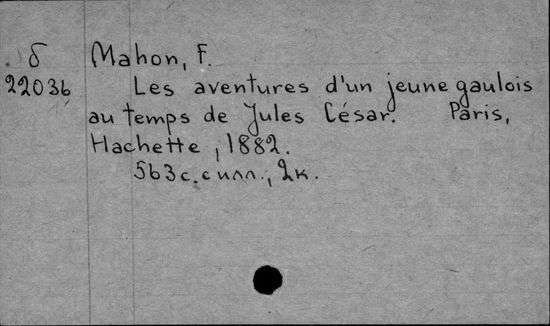 δ Mahon, F.
22036 Les aventures d'un jeune gaulois
au temps de Jules César. Paris,
Hachette, 1882.
563 с. с илл., 2 к.